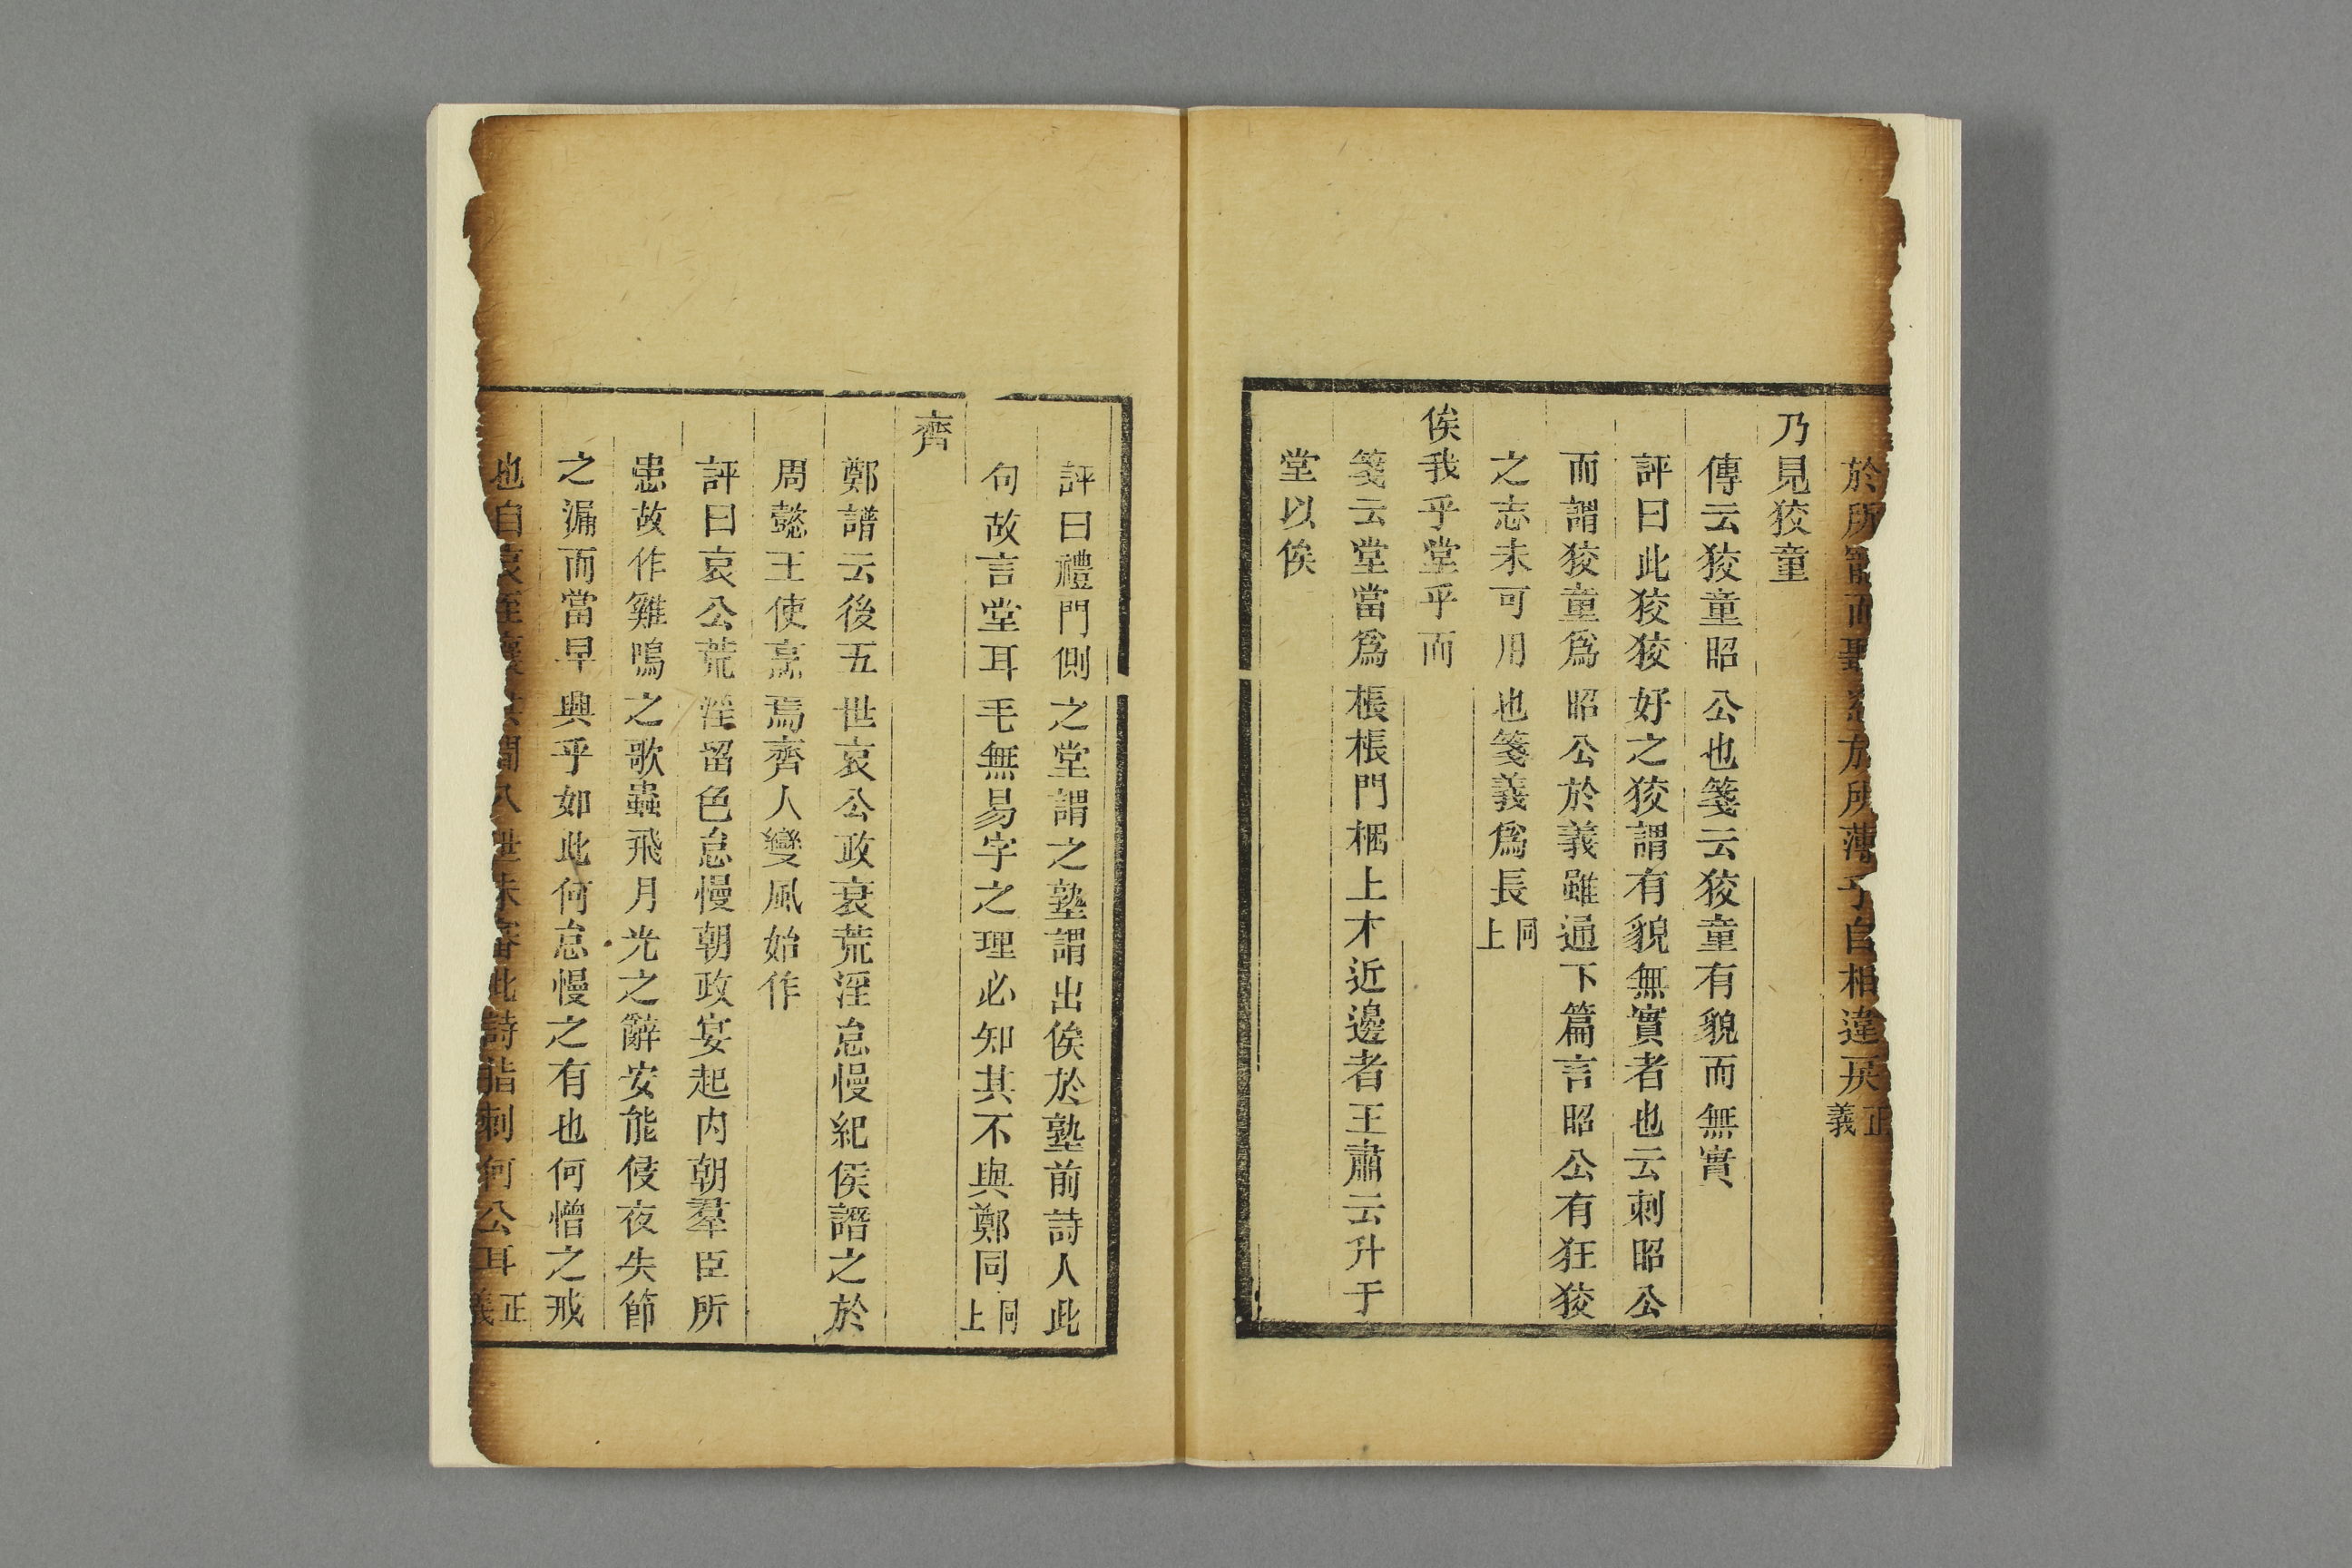 於所而聖於所薄乎自相違戾正義
乃見狡童
傳云狡童昭公也箋云狡童有貌而無實
評曰此狡狡好之狡謂有貌無實者也云刺昭公
而謂狡童爲昭公於義雖通下篇言昭公有狂狡
之志未可用也箋義爲長同上
俟我乎堂乎而
箋云堂當爲棖棖門梱上木近邊者王肅云升于
堂以俟
評曰禮門側之堂謂之塾謂出俟於塾前詩人此
句故言堂耳毛無易字之理必知其不與鄭同同上
齊
鄭譜云後五世哀公政衰荒淫怠慢紀侯譖之於
周懿王使烹焉齊人變風始作
評曰哀公荒淫留色怠慢朝政宴起內朝羣臣所
患故作雞鳴之歌蟲飛月光之辭安能侵夜失節
之漏而當早興乎如此何怠慢之有也何憎之戒
也自哀至襄其間八世未審此詩指刺何公耳正義